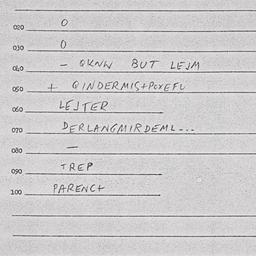 020 O
030 O
040 - QKNW BUT LEJM
050 + QINDERMIS+POYEFU
060 LEJTER
070 DERLANGMIRDEML---
080 —
090 TREP
100 PARENC+